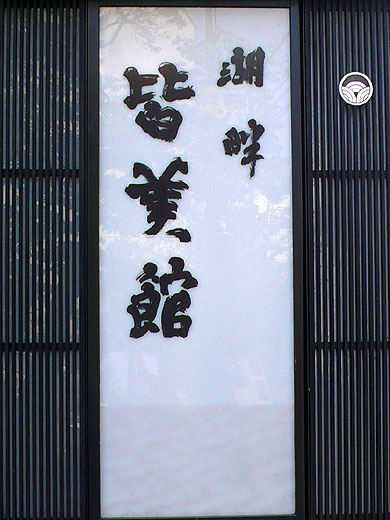 湖畔
皆美館